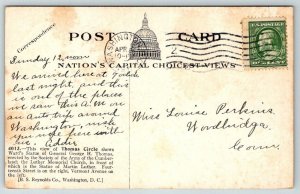 Correspondence
POST CARD
NATION'S CAPITAL CHOICEST VIEWS
WASHINGTON
APR
Sunday 12 noon
We arrived here at 7 o'clock
last night, and this
is one of the places
we now saw this A.M. on
an auto trip around
Washington, wish
you were here with
us. Eddie
Miss Louise Perkins
Woodbridge
Conn.
4012. - This view of Thomas Circle shows
Ward's Statue of General George H. Thomas,
erected by the Society of the Army of the Cumber-
land; the Luther Memorial Church, in front of
which is the Statue of Martin Luther. Four-
teenth Street is on the right, Vermont Avenue on
the left.
[B. S. Reynolds Co., Washington, D. C.]